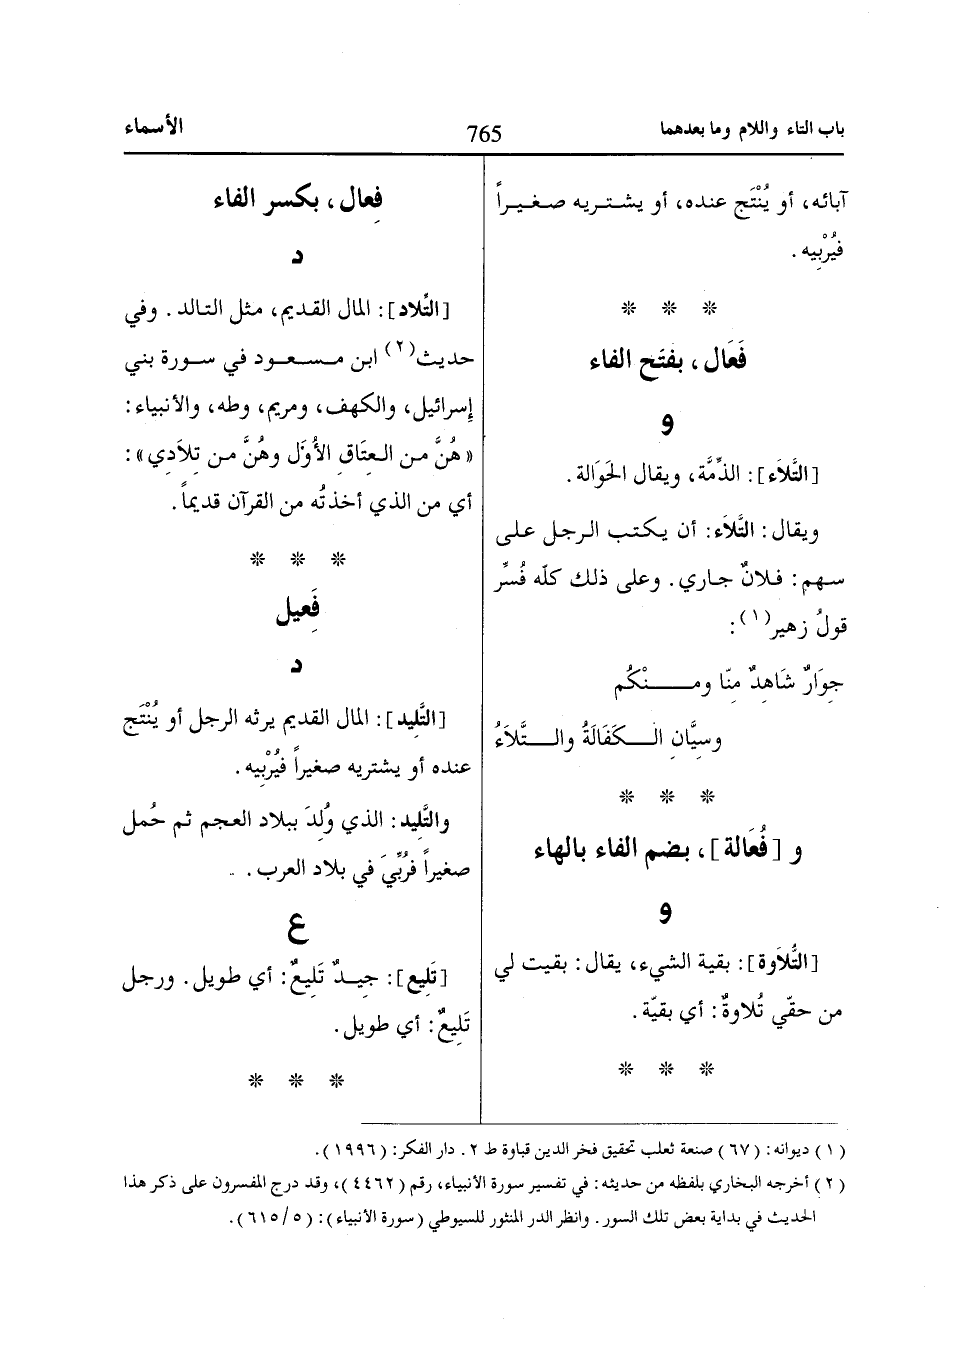 باب التاء واللام وما بعدهما
765
الأسماء
آبائه، أو يُنْتَج عنده، أو يشتريه صغيراً
فيُرْبِيه.
* * *
فَعَال، بفتَح الفاء
و
[التَّلاَء]: الذِّمَّة، ويقال الحَوَالة.
ويقال: التَّلاَء: أن يكتب الرجل على
سهم: فلانٌ جاري. وعلى ذلك كلّه فُسِّر
قولُ زهير(١):
جِوَارٌ شَاهِدٌ منّا ومنْكُم
وسيَّانِ الكَفَالَةُ والتَّلاَءُ
* * *
و [فُعَالة]، بضم الفاء بالهاء
و
[التُّلاَوة]: بقية الشيء، يقال: بقيت لي
من حقّي تُلاوةٌ: أي بقيّة.
* * *
فِعال، بكسر الفاء
د
[التِّلاد]: المال القديم، مثل التالد. وفي
حديث(٢) ابن مسعود في سورة بني
إسرائيل، والكهف، ومريم، وطه، والأنبياء:
«هُنَّ من العِتَاقِ الأُوَّل وهُنَّ من تلاَدِي»:
أي من الذي أخذتُه من القرآن قديماً.
* * *
فَعِيل
د
[التَّلِيد]: المال القديم يرثه الرجل أو يُنْتَج
عنده أو يشتريه صغيراً فيُرْبِيه.
والتَّلِيد: الذي وُلِدَ ببلاد العجم ثم حُمل
صغيراً فرُبِّيَ في بلاد العرب.
ع
[تَلِيع]: جِيدٌ تَلِيعٌ: أي طويل. ورجل
تَلِيعٌ: أي طويل.
* * *
(١) ديوانه: (٦٧) صنعة ثعلب تحقيق فخر الدين قباوة ط ٢. دار الفكر: (١٩٩٦).
(٢) أخرجه البخاري بلفظه من حديثه: في تفسير سورة الأنبياء، رقم (٤٤٦٢)، وقد درج المفسرون على ذكر هذا
الحديث في بداية بعض تلك السور. وانظر الدر المنثور للسيوطي (سورة الأنبياء): (٥/ ٦١٥).